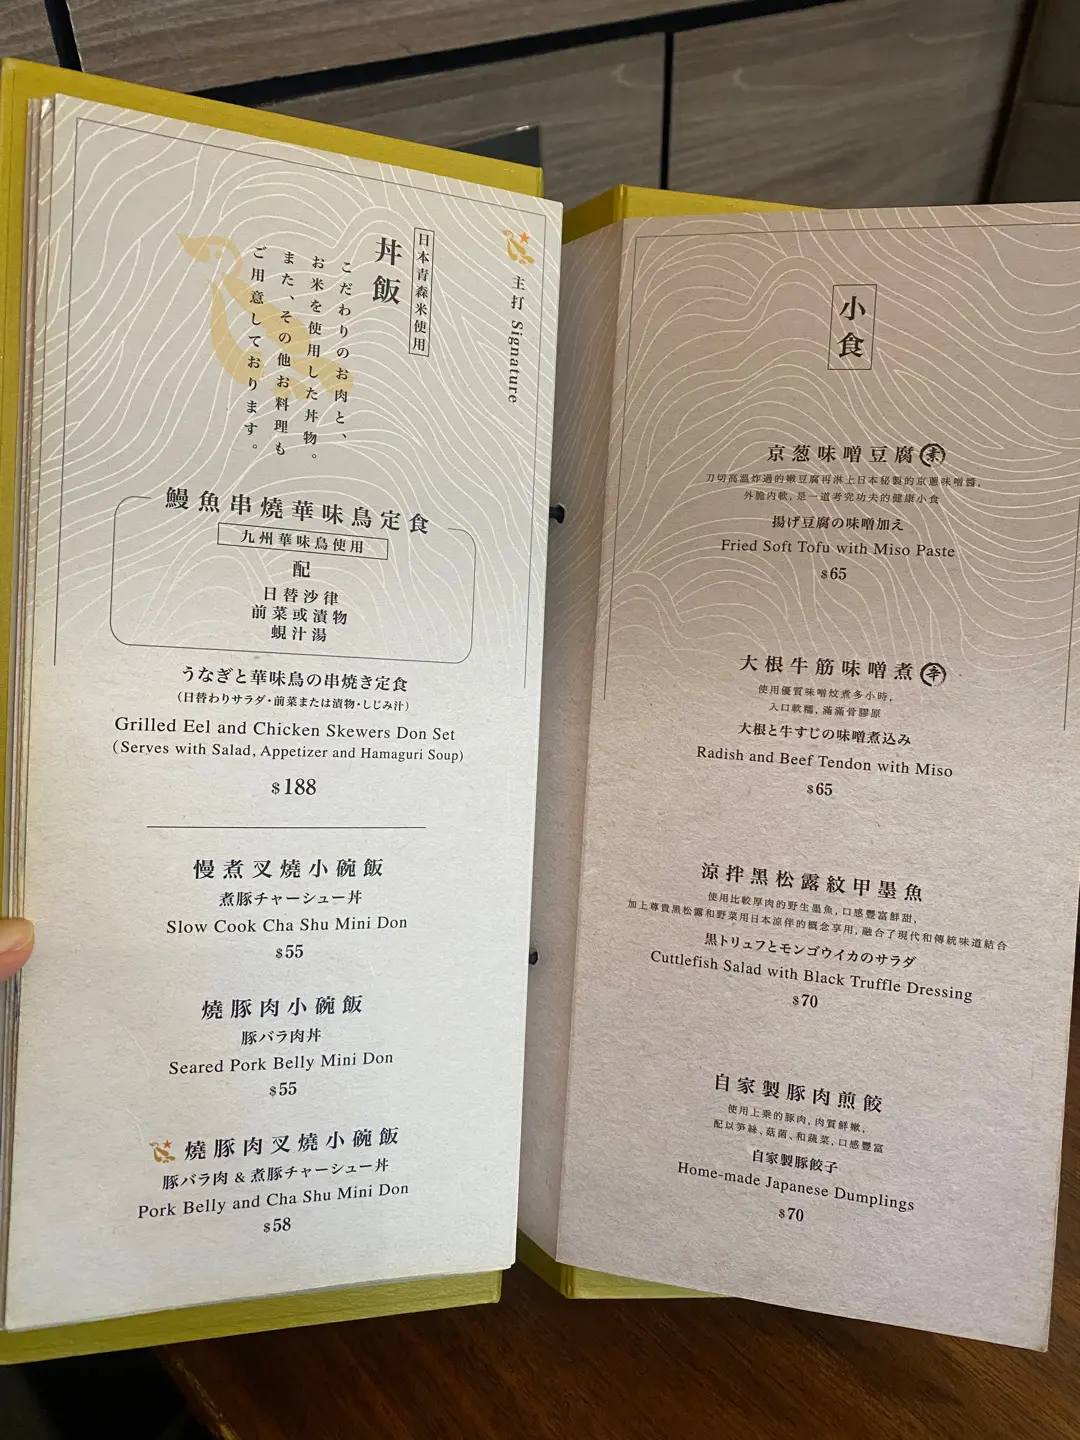 主打 Signature
日本青森米使用
丼飯
こだわりのお肉と、
お米を使用した丼物。
また、その他お料理も
ご用意しております。
鰻魚串燒華味鳥定食
九州華味鳥使用
配
日替沙律
前菜或漬物
蜆汁湯
うなぎと華味鳥の串焼き定食
(日替わりサラダ・前菜または漬物・しじみ汁)
Grilled Eel and Chicken Skewers Don Set
(Serves with Salad, Appetizer and Hamaguri Soup)
$188
慢煮叉燒小碗飯
煮豚チャーシュー丼
Slow Cook Cha Shu Mini Don
$55
燒豚肉小碗飯
豚バラ肉丼
Seared Pork Belly Mini Don
$55
燒豚肉叉燒小碗飯
豚バラ肉 & 煮豚チャーシュー丼
Pork Belly and Cha Shu Mini Don
$58
小食
京葱味噌豆腐 素
刀切高溫炸過的嫩豆腐再淋上日本秘製的京蔥味噌醬,
外脆内軟, 是一道考究功夫的健康小食
揚げ豆腐の味噌加え
Fried Soft Tofu with Miso Paste
$65
大根牛筋味噌煮 辛
使用優質味噌炆煮多小時,
入口軟糯, 滿滿骨膠原
大根と牛すじの味噌煮込み
Radish and Beef Tendon with Miso
$65
涼拌黑松露紋甲墨魚
使用比較厚肉的野生墨魚, 口感豐富鮮甜,
加上尊貴黑松露和野菜用日本涼伴的概念享用, 融合了現代和傳統味道結合
黒トリュフとモンゴウイカのサラダ
Cuttlefish Salad with Black Truffle Dressing
$70
自家製豚肉煎餃
使用上乘的豚肉, 肉質鮮嫩,
配以笋絲、菇菌、和蔬菜, 口感豐富
自家製豚餃子
Home-made Japanese Dumplings
$70